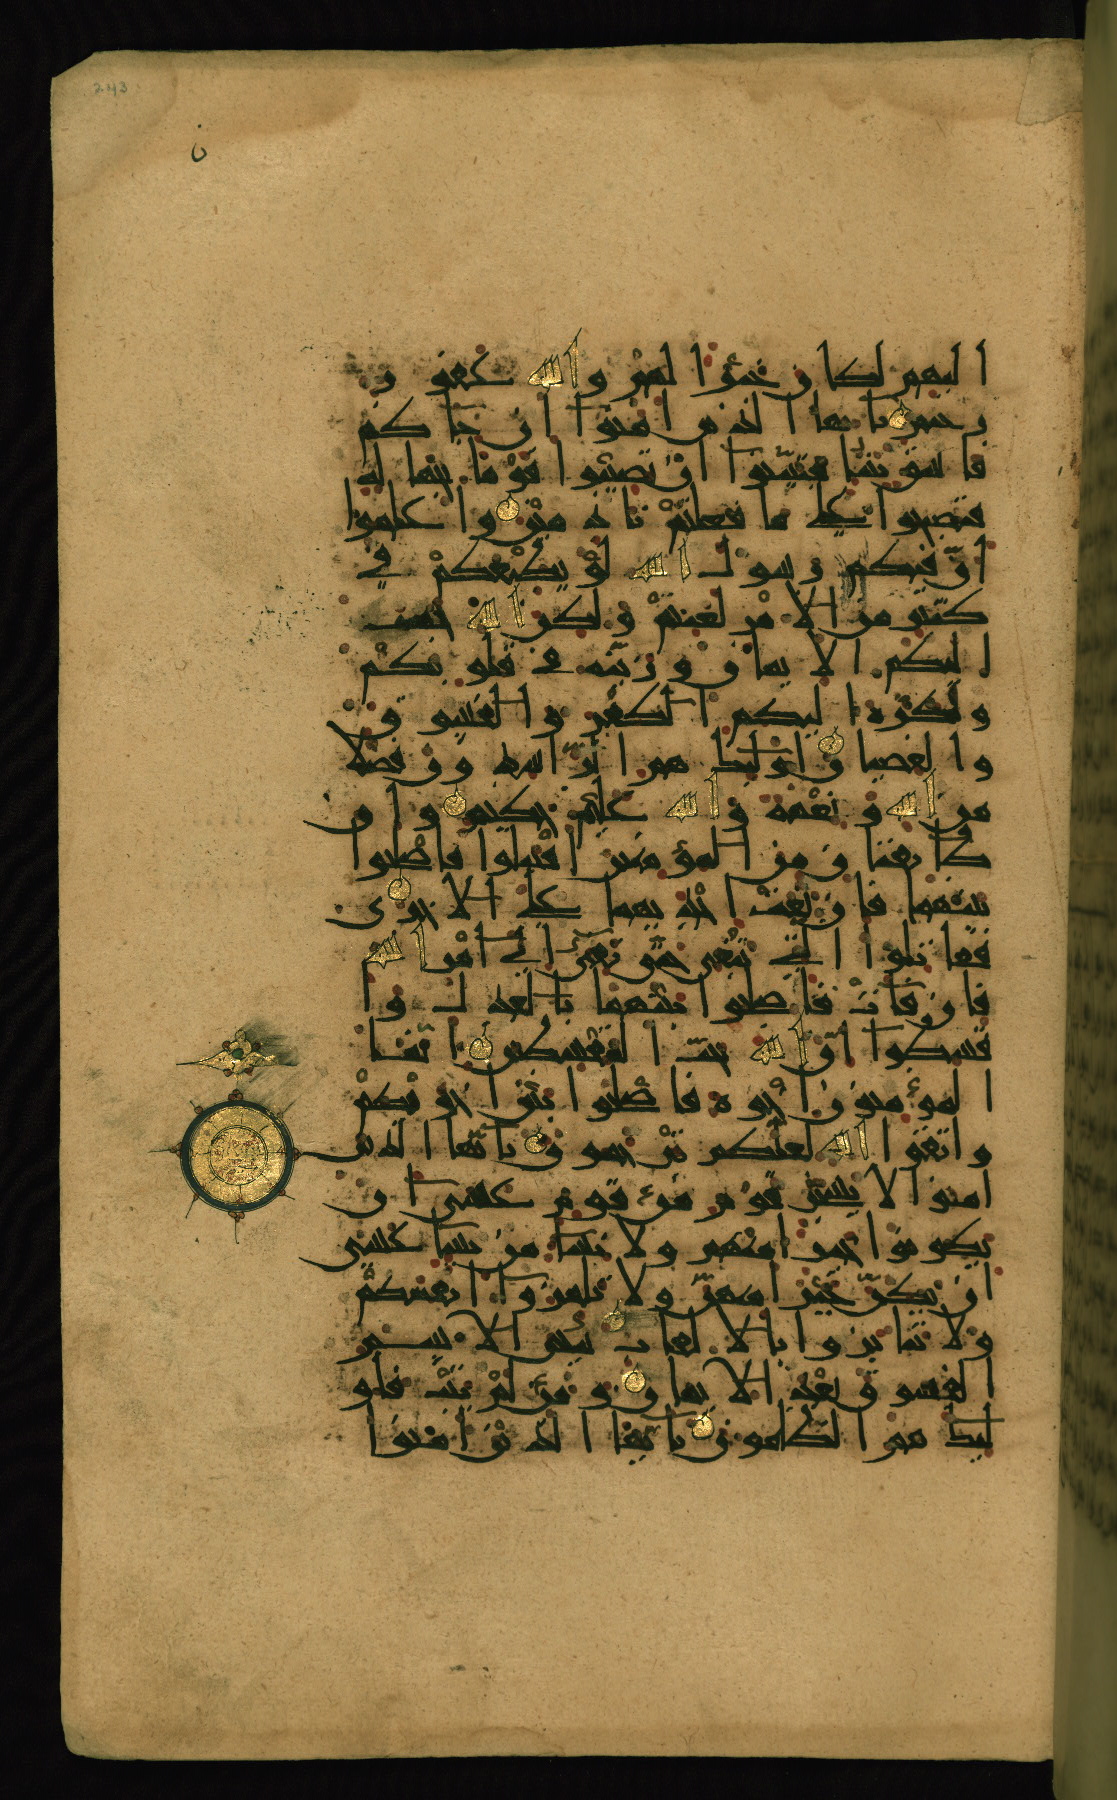 243
ن
اليهم لكان خيرا لهم والله غفور
رحيم يايها الذين امنوا ان جاكم
فاسق بنبا فتبينوا ان تصيبوا قوما بجهالة
فتصبحوا على ما فعلتم نادمين واعلموا
ان فيكم رسول الله لو يطيعكم في
كثير من الامر لعنتم ولكن الله حبب
اليكم الايمان وزينه في قلوبكم
وكره اليكم الكفر والفسوق
والعصيان اولئك هم الراشدون فضلا
من الله ونعمة والله عليم حكيم وان
طائفتان من المؤمنين اقتتلوا فاصلحوا
بينهما فان بغت احديهما على الاخرى
فقاتلوا التي تبغي حتى تفئ الى امر الله
فان فات فاصلحوا بينهما بالعدل وا
قسطوا ان الله يحب المقسطين انما
المؤمنون اخوة فاصلحوا بين اخويكم
واتقوا الله لعلكم ترحمون يايها الذين
امنوا لا يسخر قوم من قوم عسى ان
يكونوا خيرا منهم ولا نسا من نسا عسى
ان يكن خيرا منهن ولا تلمزوا انفسكم
ولا تنابزوا بالالقاب بئس الاسم
الفسوق بعد الايمان ومن لم يتب فاو
لئك هم الظلمون يايها الذين امنوا